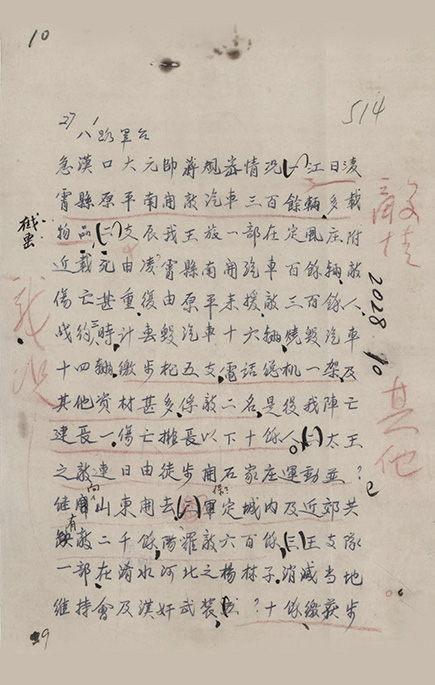 10
514
27 八路軍台
急漢口大元帥蔣 情況(一)江日凌
霄縣原平南開敵汽車三百餘輛多載
物品(二)支辰我王旅一部在定風庄附
近 由凌霄縣南開汽車百餘輛敵
傷亡甚重後由原平来援敵三百餘人
战約三時計击毀汽車十六輛燒毀汽車
十四輛繳步枪五支電話總机一架及
其他資材甚多俘敵二名是役我陣亡
連長一傷亡排長以下十餘人(二)太王
之敵連日由徒步開石家庄運動並?
継向山東開去 軍定城内及近郊共
有敵二千餘陽羅敵六百餘(三)王支隊
一部在滑水河北之楊林子消滅当地
維持會及漢奸武裝 ?十餘繳获步
截击
敵情
其他
2028
10
29